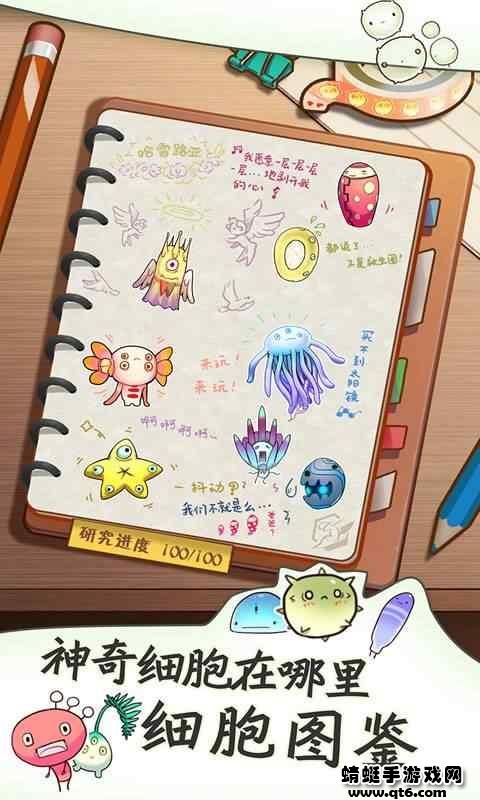 哈雷路亚
我愿意一层一层一层
一层...地剥开我
的心
都说了...
不是救生圈!
买不到太阳镜
来玩!
来玩!
啊啊啊啊..
一抖动
我们不就是么...
研究进度 100/100
神奇细胞在哪里
细胞图鉴
蜻蜓手游戏网
www.qt6.com